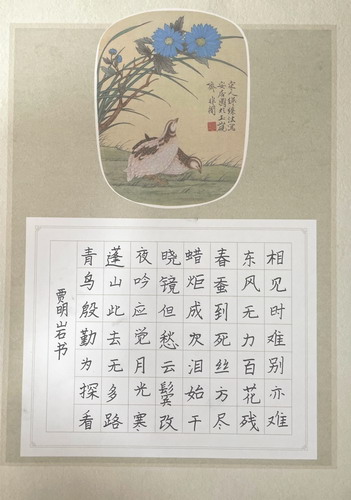 相见时难别亦难
东风无力百花残
春蚕到死丝方尽
蜡炬成灰泪始干
晓镜但愁云鬓改
夜吟应觉月光寒
蓬山此去无多路
青鸟殷勤为探看
贾明岩书